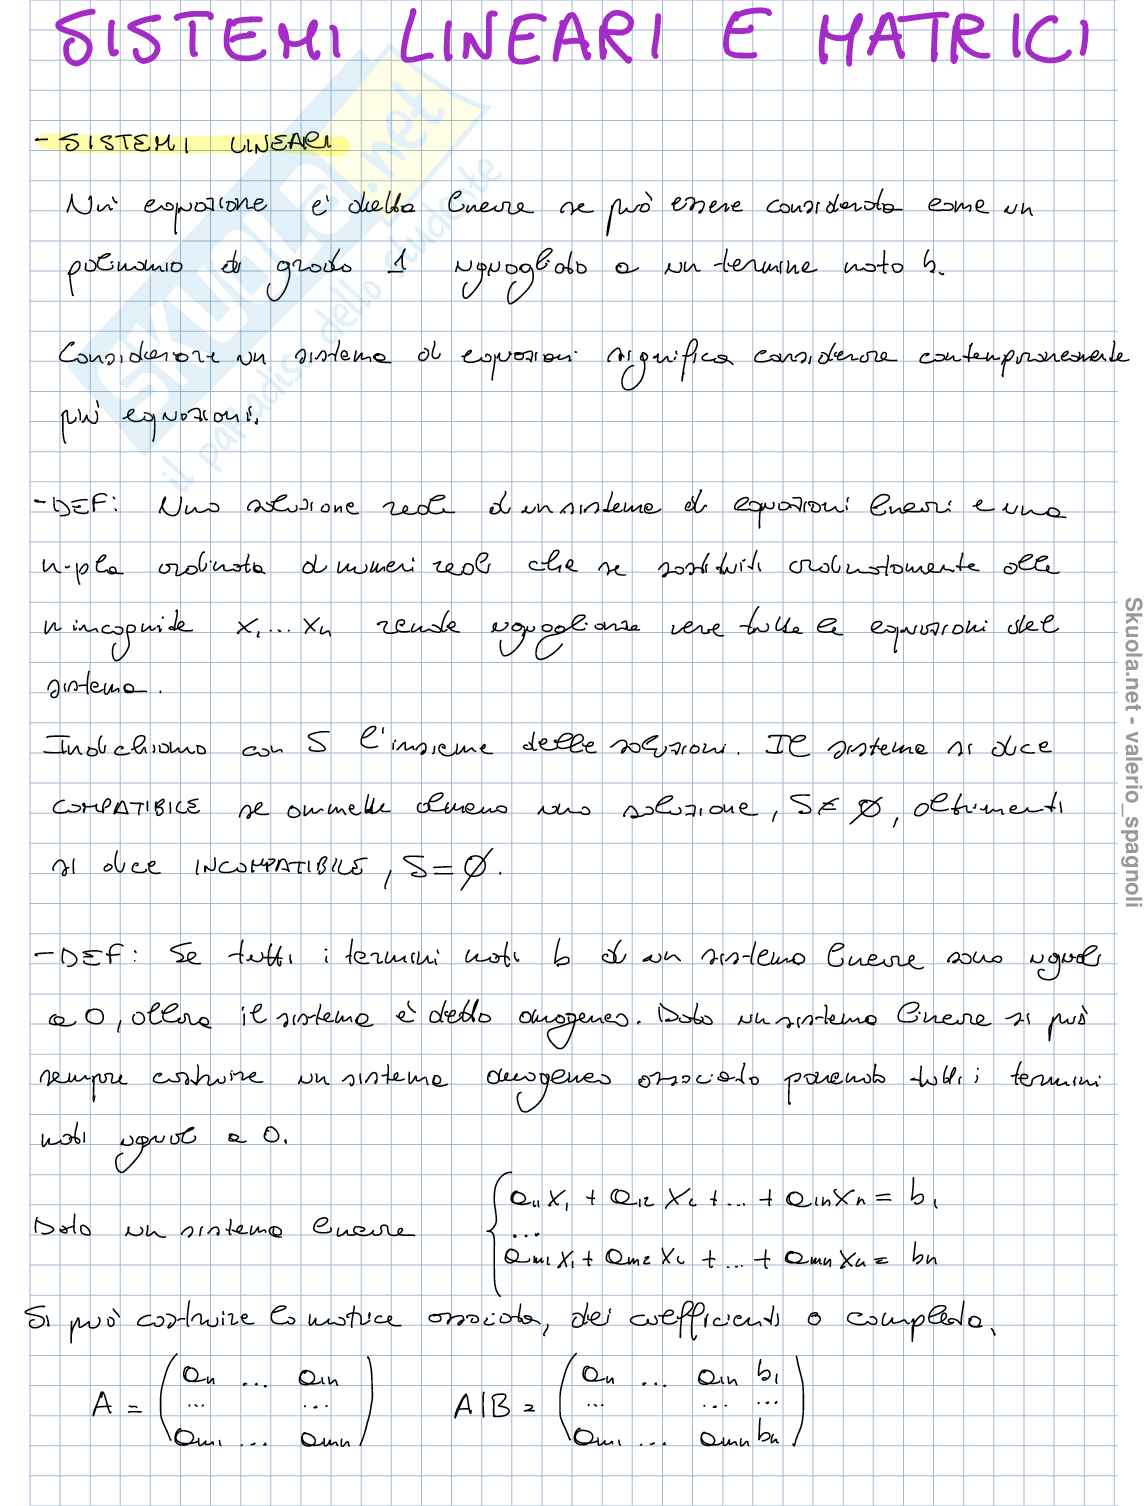 SISTEMI LINEARI E MATRICI
- SISTEMI LINEARI
Un' equazione e' detta lineare se può essere considerata come un
polinomio di grado 1 uguagliato a un termine noto b.
Considerare un sistema di equazioni significa considerare contemporaneamente
più equazioni.
- DEF: Una soluzione reale di un sistema di equazioni lineari e una
n-pla ordinata di numeri reali che se sostituiti ordinatamente alle
n incognite x₁ ... xn rende uguaglianze vere tutte le equazioni del
sistema.
Indichiamo con S l'insieme delle soluzioni. Il sistema si dice
COMPATIBILE se ammette almeno una soluzione, S≠ ∅, altrimenti
si dice INCOMPATIBILE, S=∅.
- DEF: Se tutti i termini noti b di un sistema lineare sono uguali
a 0, allora il sistema è detto omogeneo. Dato un sistema lineare si può
sempre costruire un sistema omogeneo associato ponendo tutti i termini
noti uguali a 0.
Dato un sistema lineare { a₁₁x₁ + a₁₂x₂ + ... + a₁nxn = b₁
...
am₁x₁ + am₂x₂ + ... + amnxn = bn
Si può costruire la matrice associata, dei coefficienti o completa.
A = ( a₁₁ ... a₁n ) A|B = ( a₁₁ ... a₁n b₁ )
... ... ... ... ...
am₁ ... amn am₁ ... amn bn
SKUOLA.net
il paradiso dello studente
Skuola.net - valerio_spagnoli